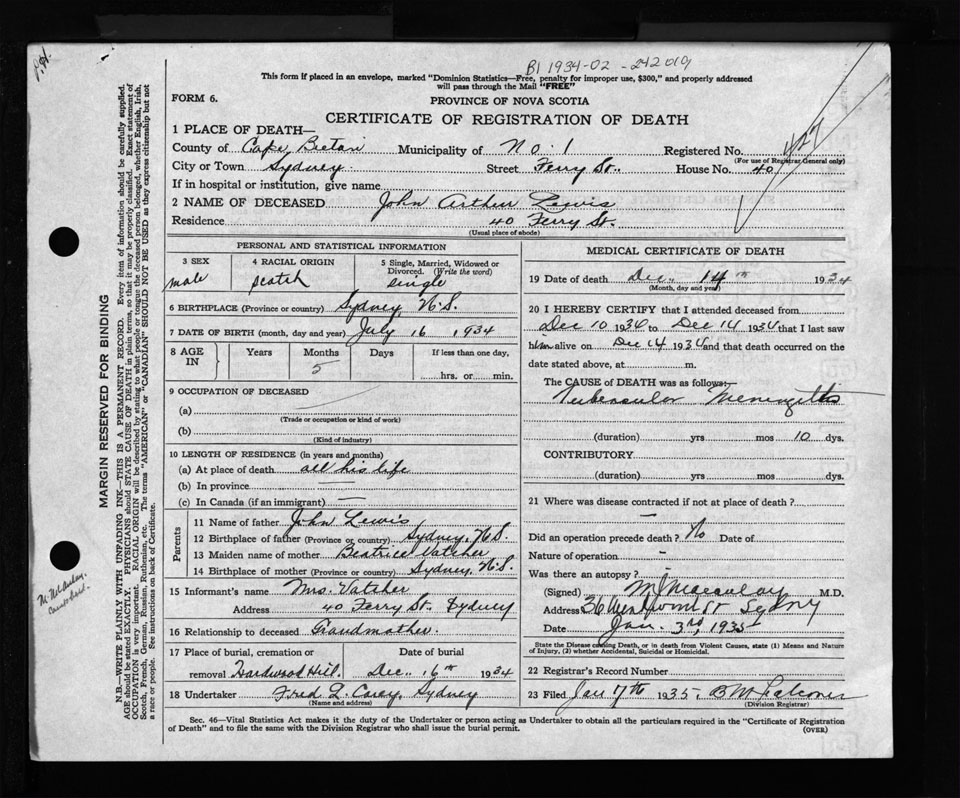 B1 1934-02-242019
This form if placed in an envelope, marked "Dominion Statistics—Free, penalty for improper use, $300," and properly addressed
will pass through the Mail "FREE"
FORM 6.
PROVINCE OF NOVA SCOTIA
CERTIFICATE OF REGISTRATION OF DEATH
1 PLACE OF DEATH—
County of Cape Breton Municipality of No. 1 Registered No. 427
(For use of Registrar General only)
City or Town Sydney Street Ferry St. House No. 40
If in hospital or institution, give name
2 NAME OF DECEASED John Arthur Lewis
Residence 40 Ferry St.
(Usual place of abode)
PERSONAL AND STATISTICAL INFORMATION
3 SEX male
4 RACIAL ORIGIN Scotch
5 Single, Married, Widowed or
Divorced. (Write the word)
single
6 BIRTHPLACE (Province or country) Sydney, N.S.
7 DATE OF BIRTH (month, day and year) July 16 1934
8 AGE IN Years Months 5 Days If less than one day,
hrs. or min.
9 OCCUPATION OF DECEASED
(a)
(Trade or occupation or kind of work)
(b)
(Kind of industry)
10 LENGTH OF RESIDENCE (in years and months)
(a) At place of death all his life
(b) In province —
(c) In Canada (if an immigrant) —
Parents
11 Name of father John Lewis
12 Birthplace of father (Province or country) Sydney, N.S.
13 Maiden name of mother Beatrice Vatcher
14 Birthplace of mother (Province or country) Sydney, N.S.
15 Informant's name Mrs. Vatcher
Address 40 Ferry St. Sydney
16 Relationship to deceased Grandmother.
17 Place of burial, cremation or
removal Hardwood Hill.
Date of burial
Dec. 16th 1934
18 Undertaker Fred L. Curry, Sydney
(Name and address)
MEDICAL CERTIFICATE OF DEATH
19 Date of death Dec. 14th 1934
(Month, day and year)
20 I HEREBY CERTIFY that I attended deceased from
Dec 10 1934 to Dec 14 1934 that I last saw
him alive on Dec 14 1934 and that death occurred on the
date stated above, at m.
The CAUSE of DEATH was as follows:
Tubercular Meningitis
(duration) yrs mos 10 dys.
CONTRIBUTORY
(duration) yrs mos dys.
21 Where was disease contracted if not at place of death?
—
Did an operation precede death? No Date of
Nature of operation -
Was there an autopsy?
(Signed) M. J. Macaulay M.D.
Address 36 Wentworth St Sydney
Date Jan. 3rd, 1935
State the Disease causing Death, or in death from Violent Causes, state (1) Means and Nature
of Injury, (2) whether Accidental, Suicidal or Homicidal.
22 Registrar's Record Number
23 Filed Jan 17th 1935. B M Falconer
(Division Registrar)
Sec. 46—Vital Statistics Act makes it the duty of the Undertaker or person acting as Undertaker to obtain all the particulars required in the "Certificate of Registration
of Death" and to file the same with the Division Registrar who shall issue the burial permit.
(OVER)
MARGIN RESERVED FOR BINDING
N.B.—WRITE PLAINLY WITH UNFADING INK—THIS IS A PERMANENT RECORD. Every item of information should be carefully supplied.
AGE should be stated EXACTLY. PHYSICIANS should STATE CAUSE OF DEATH in plain terms, so that it may be properly classified. Exact statement of
OCCUPATION is very important. RACIAL ORIGIN will be described by stating to what people or tongue the deceased person belonged, whether English, Irish,
Scotch, French, German, Russian, Ruthenian, etc. The terms "AMERICAN" or "CANADIAN" SHOULD NOT BE USED as they express citizenship but not
a race or people. See instructions on back of Certificate.